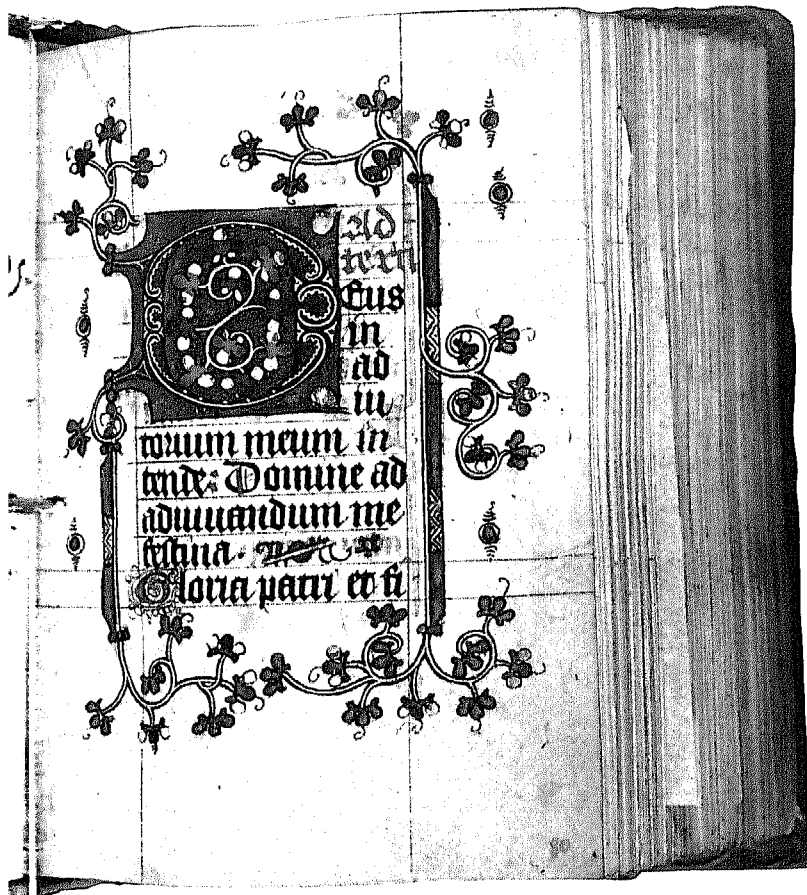 Ad
terti
Eus
in
ad
iu
torium meum in
tende: Domine ad
adiuuandum me
festina.
Gloria patri et fi